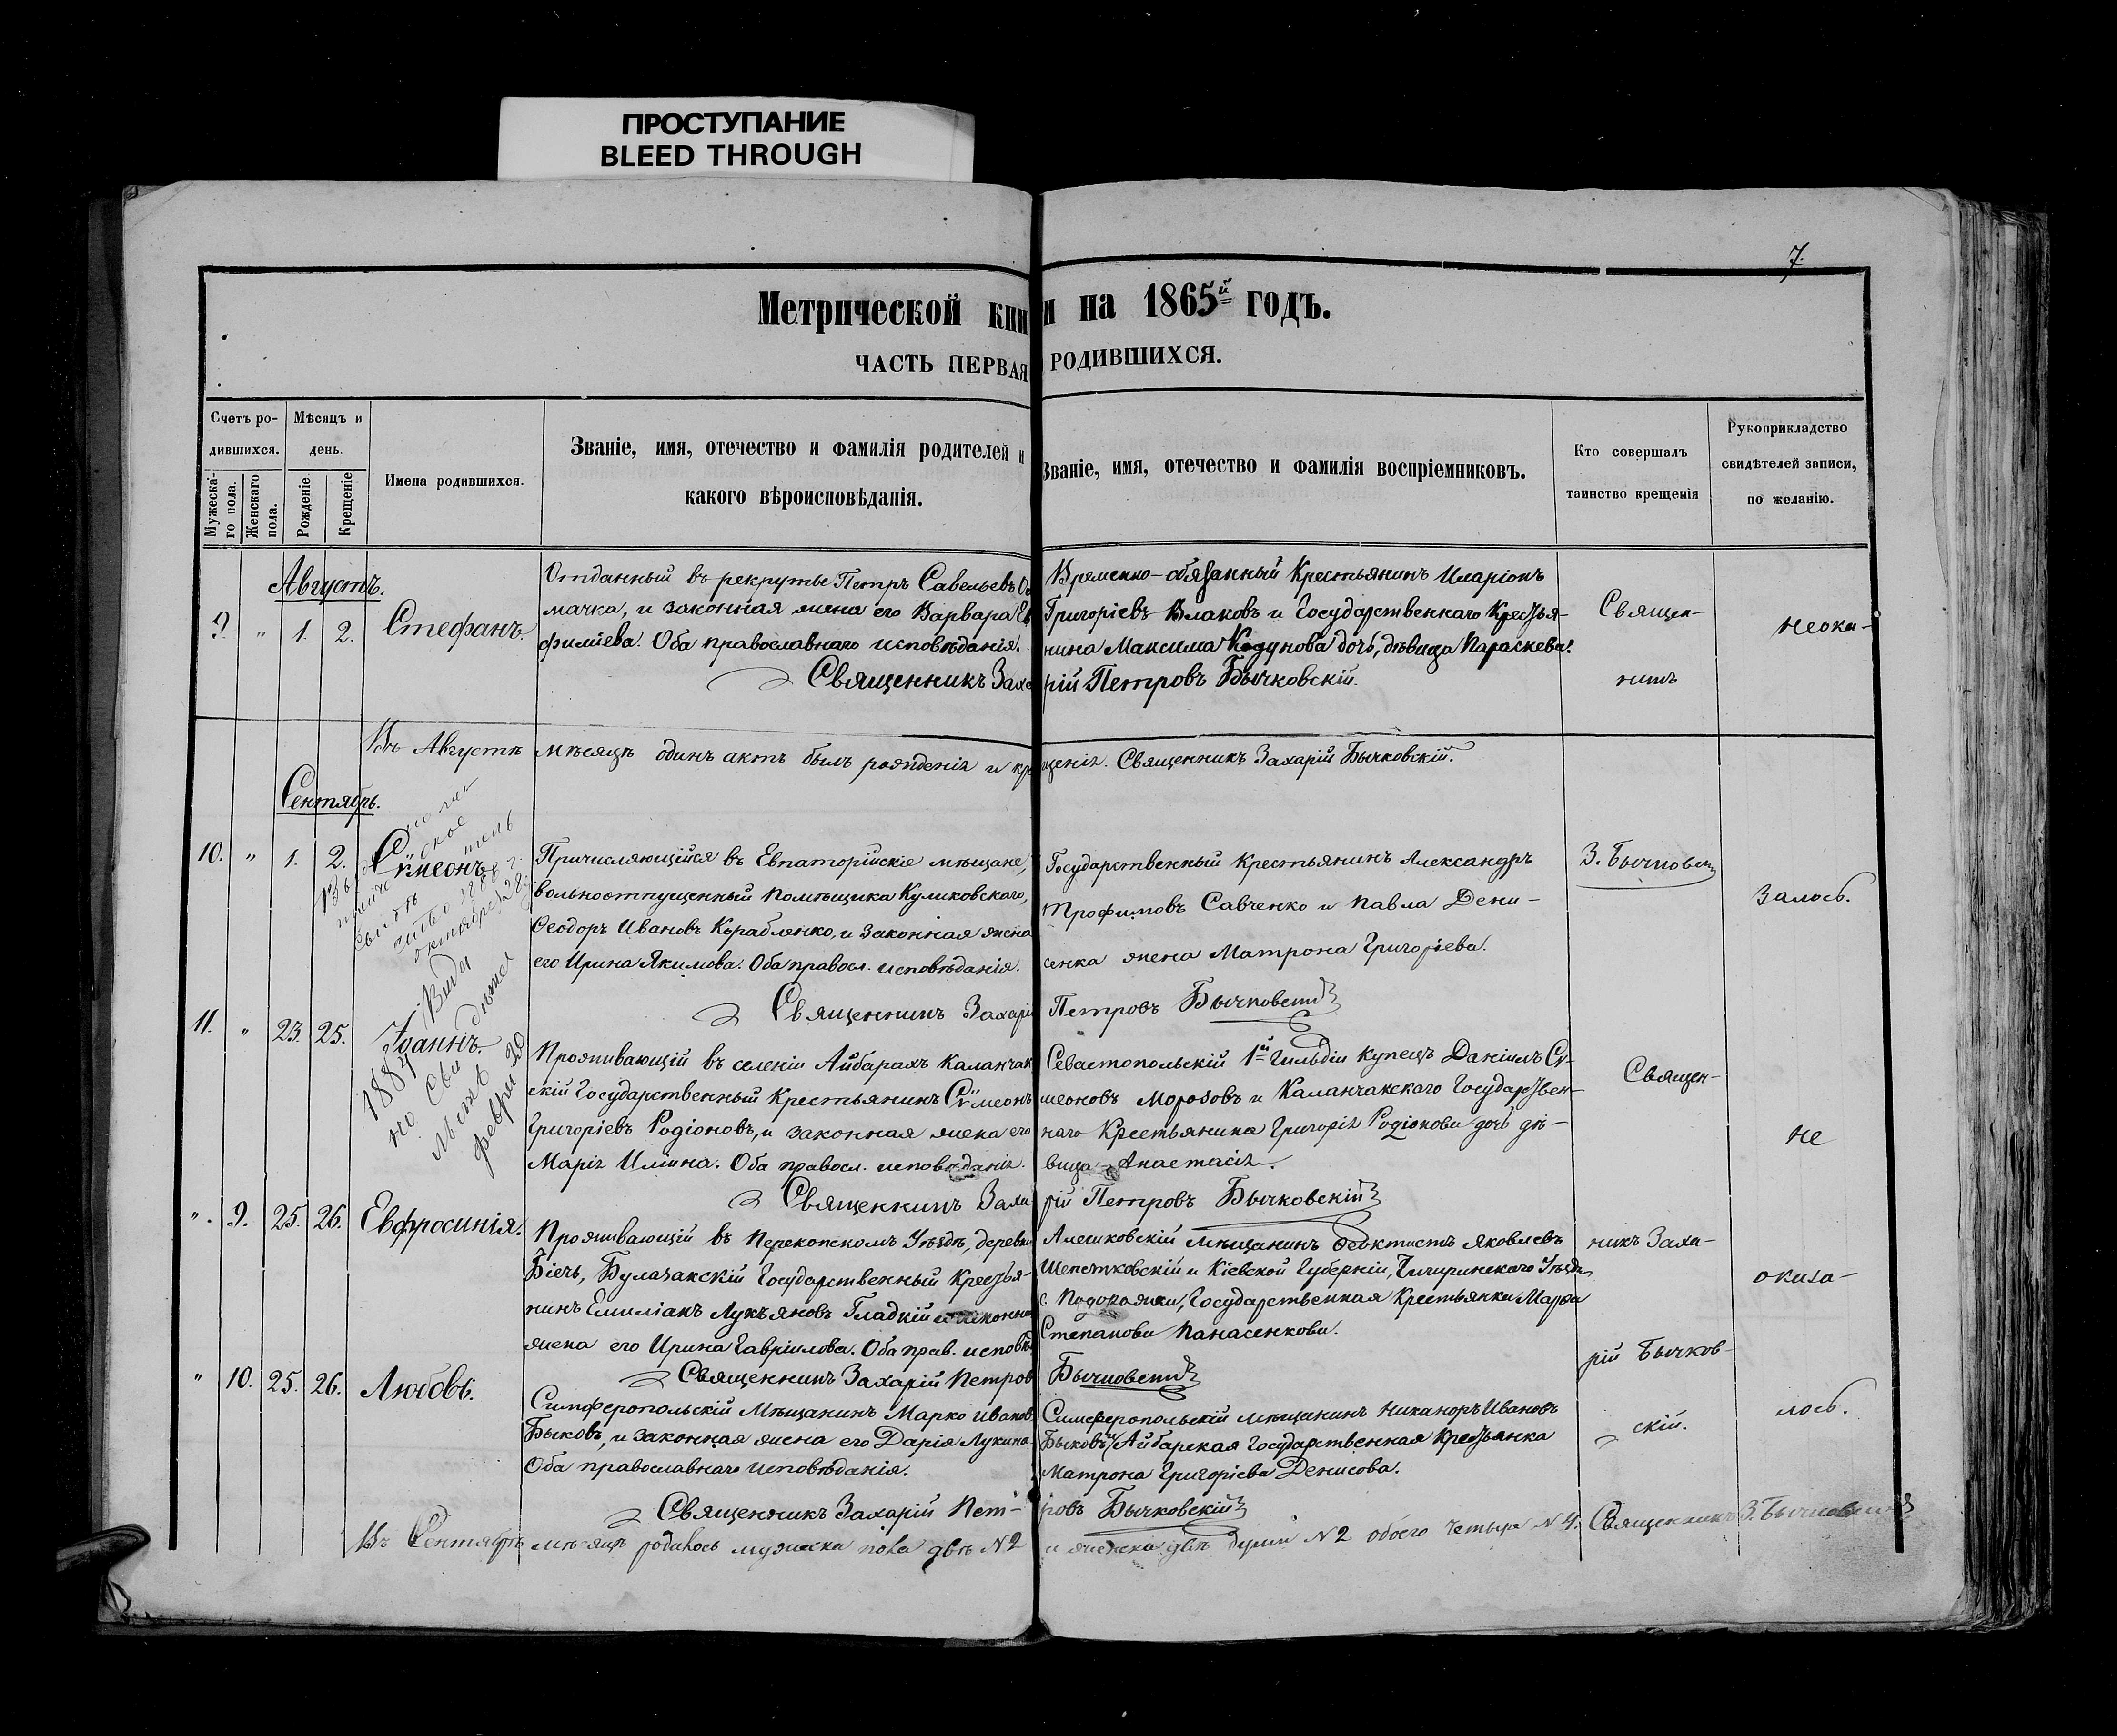 ПРОСТУПАНИЕ
BLEED THROUGH
7.
Метрической книги на 1865й годъ.
ЧАСТЬ ПЕРВАЯ РОДИВШИХСЯ.
Счетъ родившихся.
Мужескаго пола.
Женскаго пола.
Мѣсяцъ и день.
Рожденіе.
Крещеніе
Имена родившихся.
Званіе, имя, отечество и фамилія родителей и
какого вѣроисповѣданія.
Званіе, имя, отечество и фамилія воспріемниковъ.
Кто совершалъ
таинство крещенія
Рукоприкладство
свидѣтелей записи,
по желанію.
Августъ.
9. " 1. 2. Стефанъ.
Отданный въ рекруты Петръ Савельевъ
мачка, и законная жена его Варвара Ев
фиміева. Оба православнаго исповѣданія.
Временно-обязанный Крестьянинъ Иларіонъ
Григоріевъ Влаковъ и Государственнаго Крестья-
нина Максима дочь, дѣвица Параскева.
Священникъ Захарій Петровъ Бычковскій.
Священ-
никъ
неока-
Въ Августѣ мѣсяцѣ одинъ актъ былъ рожденія и крещенія. Священникъ Захарій Бычковскій.
Сентябрь.
10. " 1. 2. Сѵмеонъ.
Причисляющійся въ Евпаторійскіе мѣщане,
вольноотпущенный помѣщика Куликовскаго,
Ѳеодоръ Ивановъ Кораблянко, и законная жена
его Ирина Якимова. Оба правосл. исповѣданія.
Государственный Крестьянинъ Александръ
Трофимовъ Савченко и Павла Дени-
сенка жена Матрона Григорьева.
Священникъ Захарій Петровъ Бычковскій
З. Бычковскій
залось.
11. " 23. 25. Іоаннъ.
Проживающій въ селеніи Айбарахъ Каланчак
скій Государственный Крестьянинъ Сѵмеонъ
Григоріевъ Родіоновъ, и законная жена его
Марія Ильина. Оба правосл. исповѣданія.
Севастопольскій 1й Гильдіи Купецъ Даніилъ Сѵ-
меоновъ Моробовъ и Каланчакскаго Государствен-
наго Крестьянина Григорія Родіонова дочь дѣ-
вица Анастасія.
Священникъ Захарій Петровъ Бычковскій
Священ-
не
". 9. 25. 26. Евфросинія.
Проживающій въ Перекопскомъ Уѣздѣ, деревни
Біечь, Государственный Крестья-
нинъ Емиліанъ Лукьяновъ Гладкій и законная
жена его Ирина Гавріилова. Оба прав. исповѣ.
Алешковскій мѣщанинъ Ѳеоктистъ Яковлевъ
Шепетковскій и Кіевской Губерніи, Чигиринскаго Уѣзда
с. Государственная Крестьянка Марѳа
Степанова Панасенкова.
Священникъ Захарій Петровъ Бычковскій
никъ Заха-
оказа-
рій Бычков-
" 10. 25. 26. Любовь.
Симферопольскій Мѣщанинъ Марко Ивановъ
Быковъ, и законная жена его Дарія Лукина.
Оба православнаго исповѣданія.
Симферопольскій мѣщанинъ Никаноръ Ивановъ
Быковъ и Айбарская Государственная Крестьянка
Матрона Григоріева Денисова.
скій.
лось.
Священникъ Захарій Петровъ Бычковскій
Въ Сентябрѣ мѣсяцѣ родилось мужеска пола двѣ №2 и женска двѣ души №2 обоего четыре №4. Священникъ З. Бычковскій